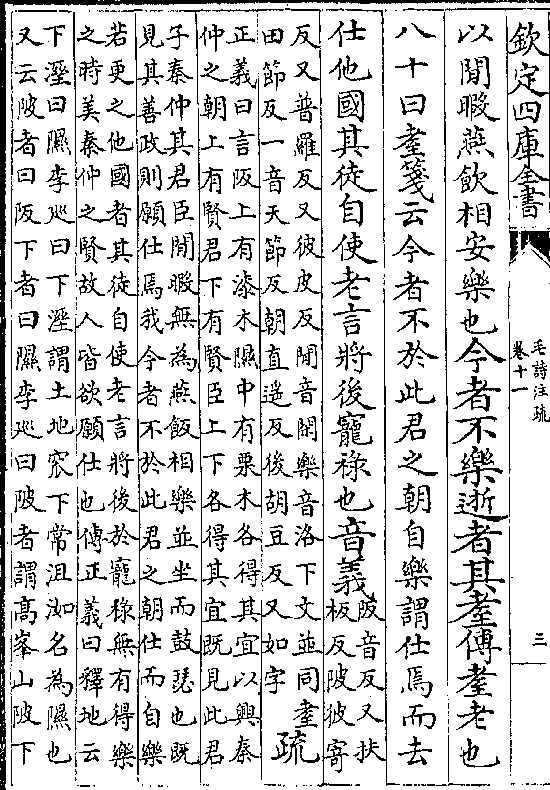 欽定四庫全書
毛詩注疏
卷十一
三
以閒暇燕飲相安樂也今者不樂逝者其耋傳耋老也
八十曰耋箋云今者不於此君之朝自樂謂仕焉而去
仕他國其徒自使老言將後寵祿也音義
阪音反又扶
板反陂彼寄
反又普羅反又彼皮反閒音閑樂音洛下文並同耋
田節反一音天節反朝直遥反後胡豆反又如字
疏
正義曰言阪上有漆木隰中有栗木各得其宜以興秦
仲之朝上有賢君下有賢臣上下各得其宜既見此君
子秦仲其君臣閒暇無為燕飯相樂並坐而鼓瑟也既
見其善政則願仕焉我今者不於此君之朝仕而自樂
若更之他國者其徒自使老言將後於寵祿無有得樂
之時美秦仲之賢故人皆欲願仕也傳正義曰釋地云
下溼曰隰李廵曰下溼謂土地窊下常沮洳名為隰也
又云陂者曰阪下者曰隰李廵曰陂者謂高峯山陂下